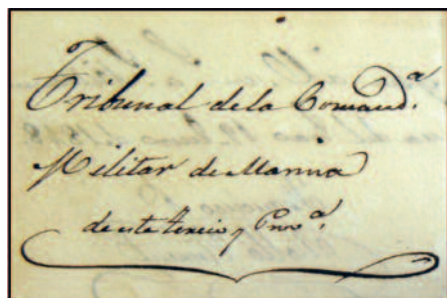 Tribunal de la Comand.ª
Militar de Marina
de este tercio y Prov.ª